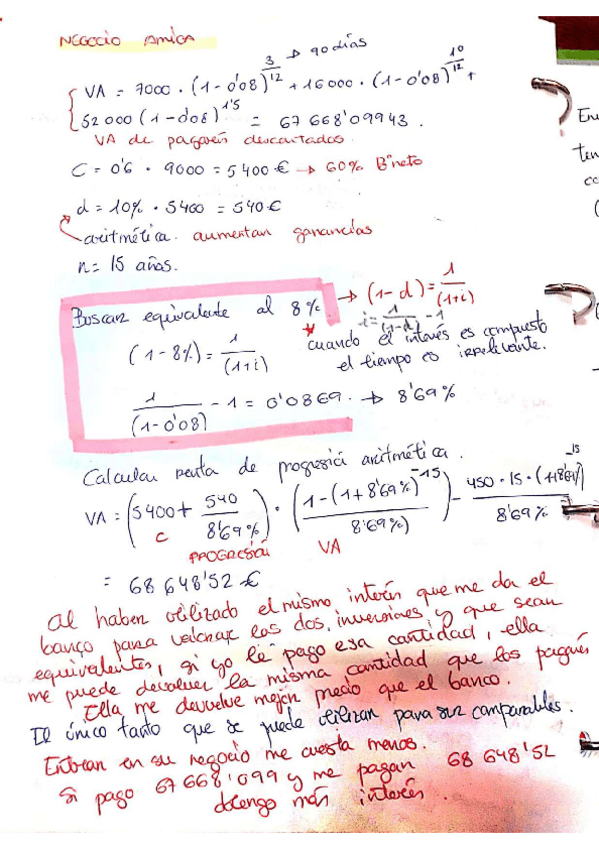 NEGOCIO AMIGA
VA = 7000 · (1-0'08)^3/12 → 90 días + 16000 · (1-0'08)^10/12 +
52 000 (1-0'08)^1'5 = 67 668'09943.
VA de pagarés descontados.
C = 0'6 · 9000 = 5400 € → 60% Bº neto
d = 10% · 5400 = 540 €
aritmética. aumentan ganancias
n = 15 años.
Buscar equivalente al 8% → (1-d) = 1/(1+i)
i = 1/(1-d) - 1
(1-8%) = 1/(1+i)
cuando el interés es compuesto
el tiempo es irrelevante.
1/(1-0'08) - 1 = 0'0869. → 8'69%
Calcular renta de progresió aritmética.
VA = (5400 + 540/8'69%) · (1-(1+8'69%)^-15/8'69%) - 450 · 15 · (1+8'69%)^-15/8'69%
C PROGRESIÓ VA
= 68 648'52 €
Al haber utilizado el mismo interés que me da el
banco para valorar las dos inversiones y que sean
equivalentes, si yo le pago esa cantidad, ella
me puede devolver la misma cantidad que los pagarés
Ella me devuelve mejor precio que el banco.
El único tanto que se puede utilizar para ser comparables.
Entrar en su negocio me cuesta menos.
Si pago 67 668'099 y me pagan 68 648'52
obtengo más interés.
En
ten
(